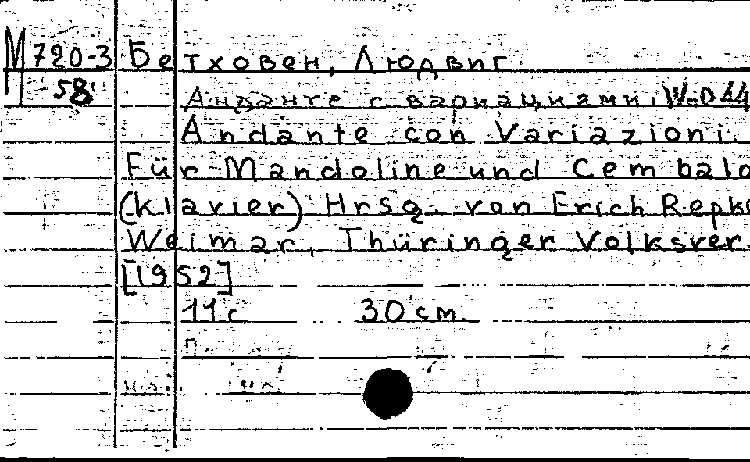 М 720-3 Бетховен, Людвиг
58 Анданте с вариациями. WoO 44
Andante con Variazioni.
Für Mandoline und Cembalo
(Klavier) Hrsg. von Erich Repke
Weimar, Thüringer Volksver.
[1952]
11 с 30 см.